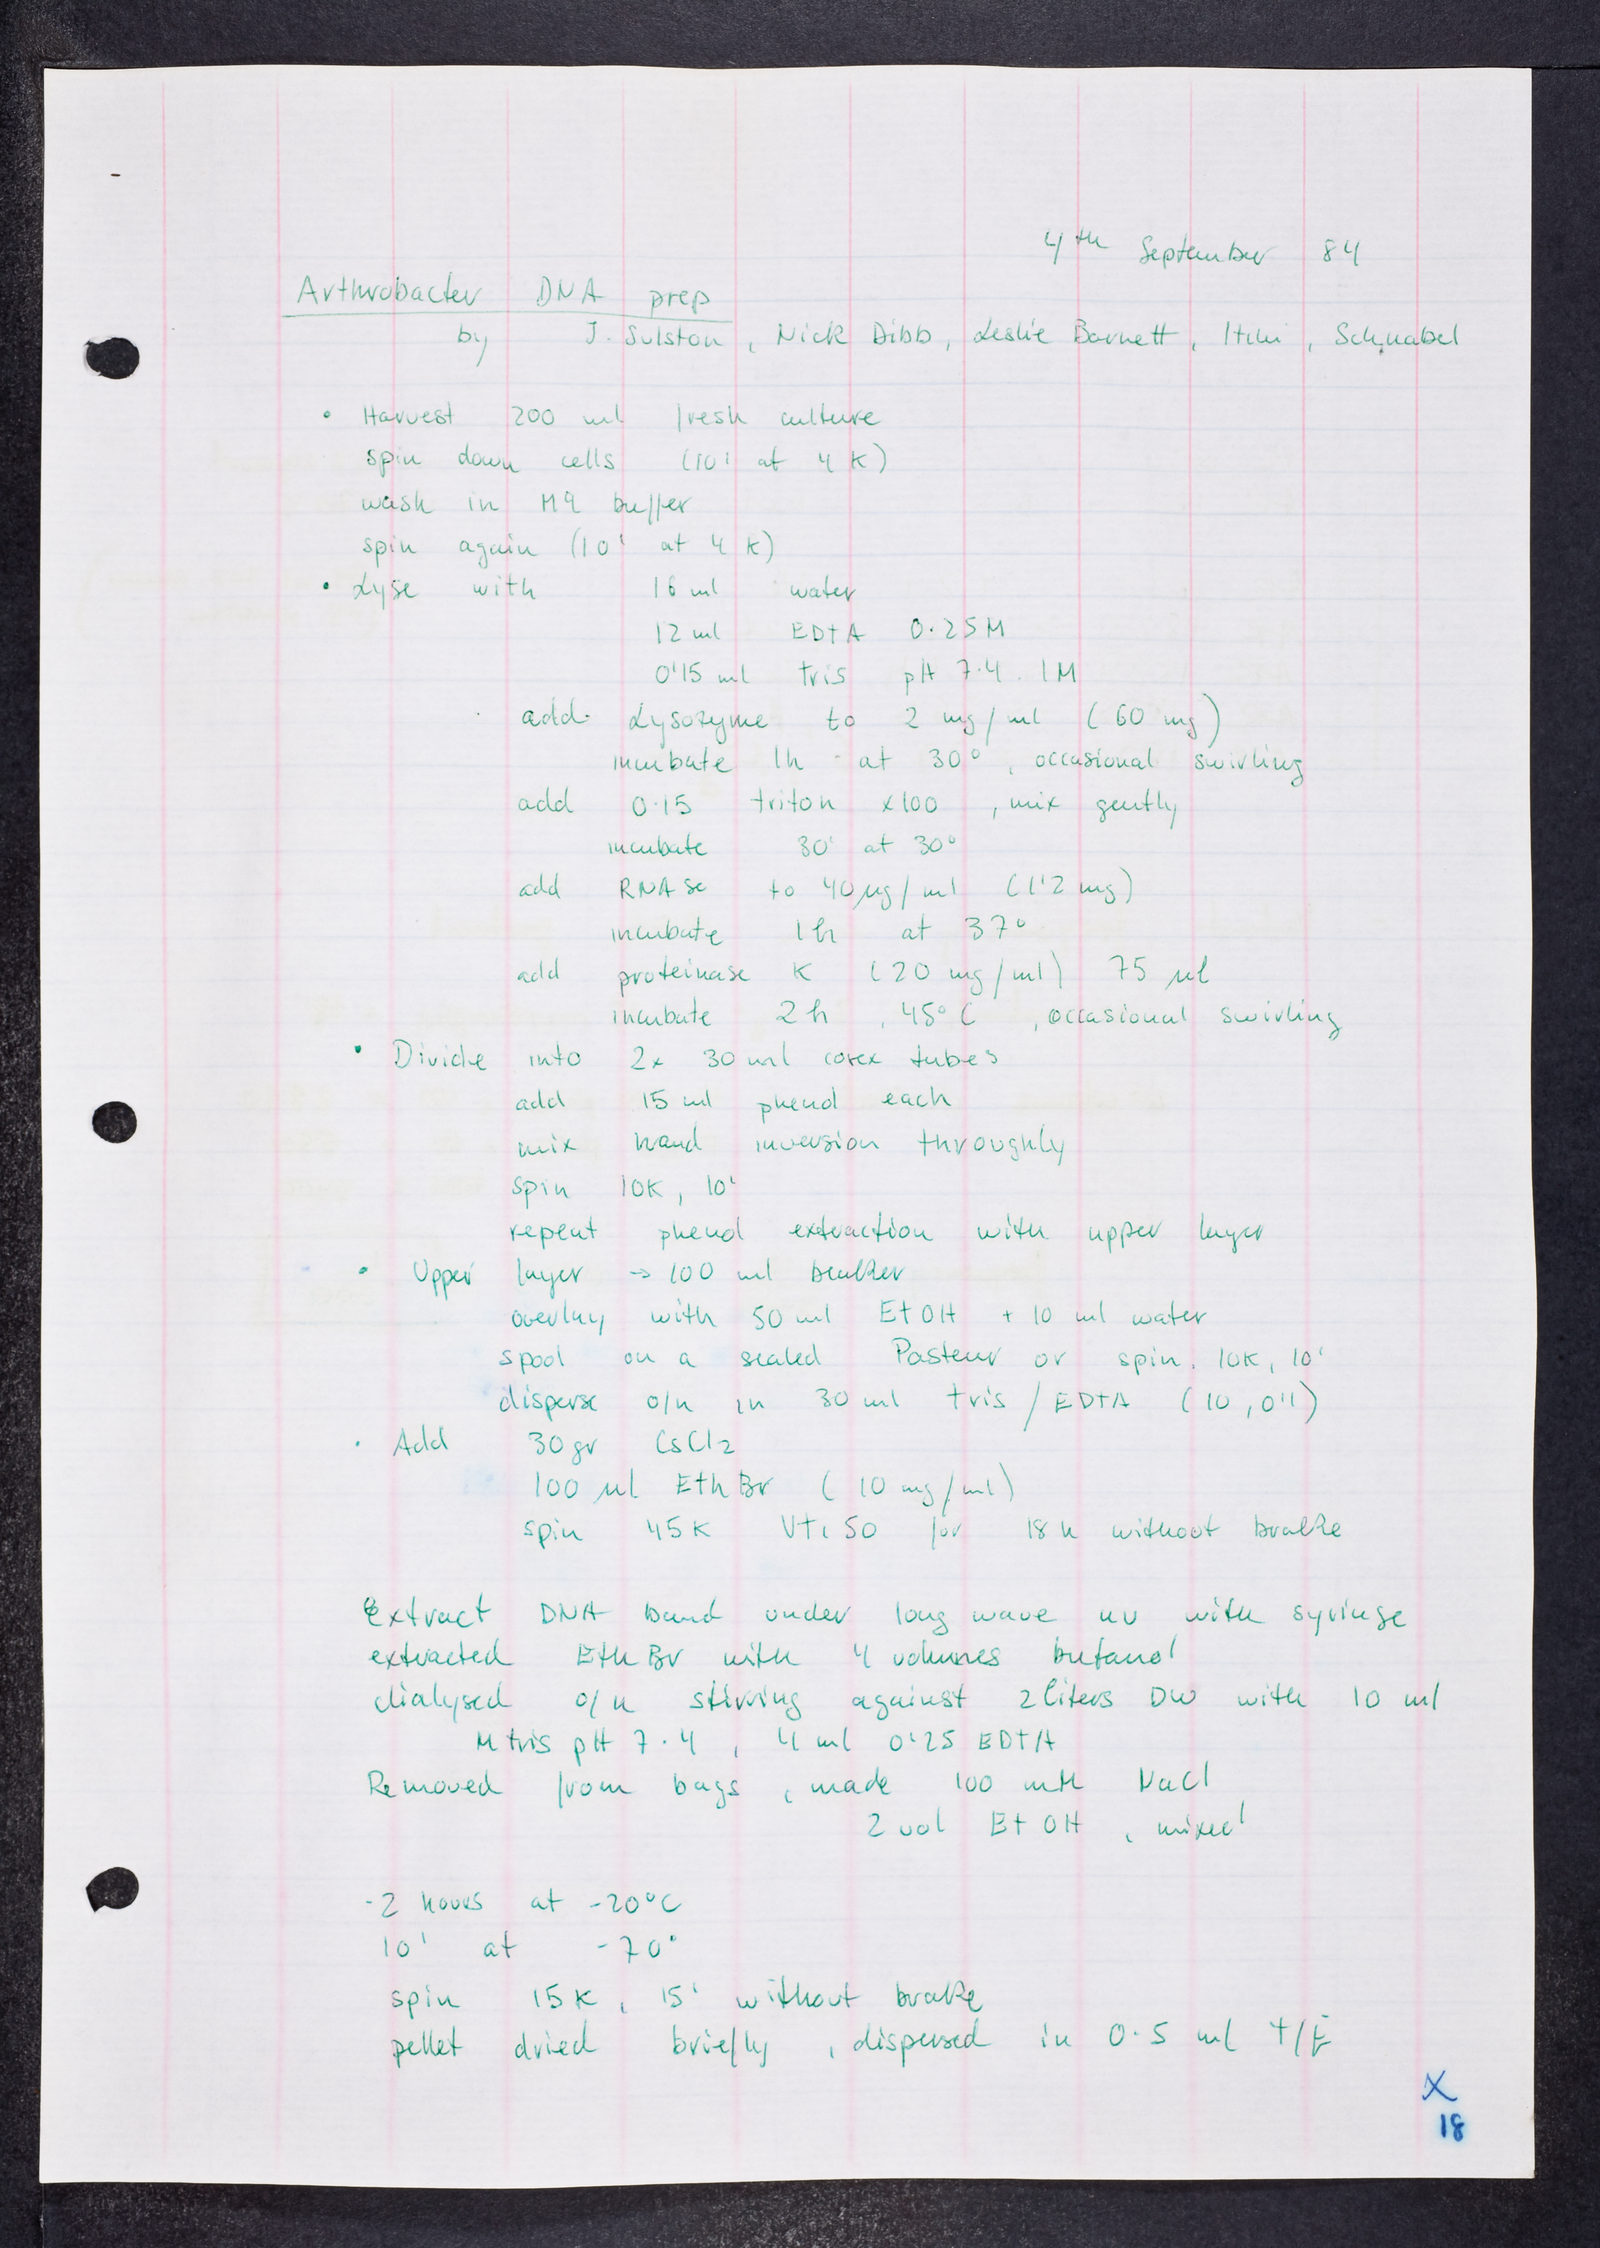 4th September 84
Arthrobacter DNA prep
by J. Sulston, Nick Dibb, Leslie Barnett, Itchi, Schnabel
• Harvest 200 ml fresh culture
spin down cells (10' at 4 K)
wash in M9 buffer
spin again (10' at 4 K)
• Lyse with 16 ml water
12 ml EDTA 0.25 M
0'15 ml tris pH 7.4 1M
add Lysozyme to 2 mg/ml (60 mg)
incubate 1h at 30°, occasional swirling
add 0.15 triton x100, mix gently
incubate 30' at 30°
add RNAse to 40 µg/ml (1'2 mg)
incubate 1h at 37°
add proteinase K (20 mg/ml) 75 µl
incubate 2h, 45°C, occasional swirling
• Divide into 2x 30 ml corex tubes
add 15 ml phenol each
mix hand inversion throughly
spin 10K, 10'
repeat phenol extraction with upper layer
• Upper layer → 100 ml beaker
overlay with 50 ml EtOH + 10 ml water
spool on a sealed Pasteur or spin 10K, 10'
disperse o/n in 30 ml tris/EDTA (10, 0'1)
• Add 30 gr CsCl2
100 µl EthBr (10 mg/ml)
spin 45K VTi 50 for 18 h without brake
Extract DNA band under long wave uv with syringe
extracted EthBr with 4 volumes butanol
dialysed o/n stirring against 2 liters DW with 10 ml
M tris pH 7.4, 4 ml 0'25 EDTA
Removed from bags, made 100 mM NaCl
2 vol EtOH, mixed
-2 hours at -20°C
10' at -70°
spin 15K, 15' without brake
pellet dried briefly, dispersed in 0.5 ml T/E
X
18